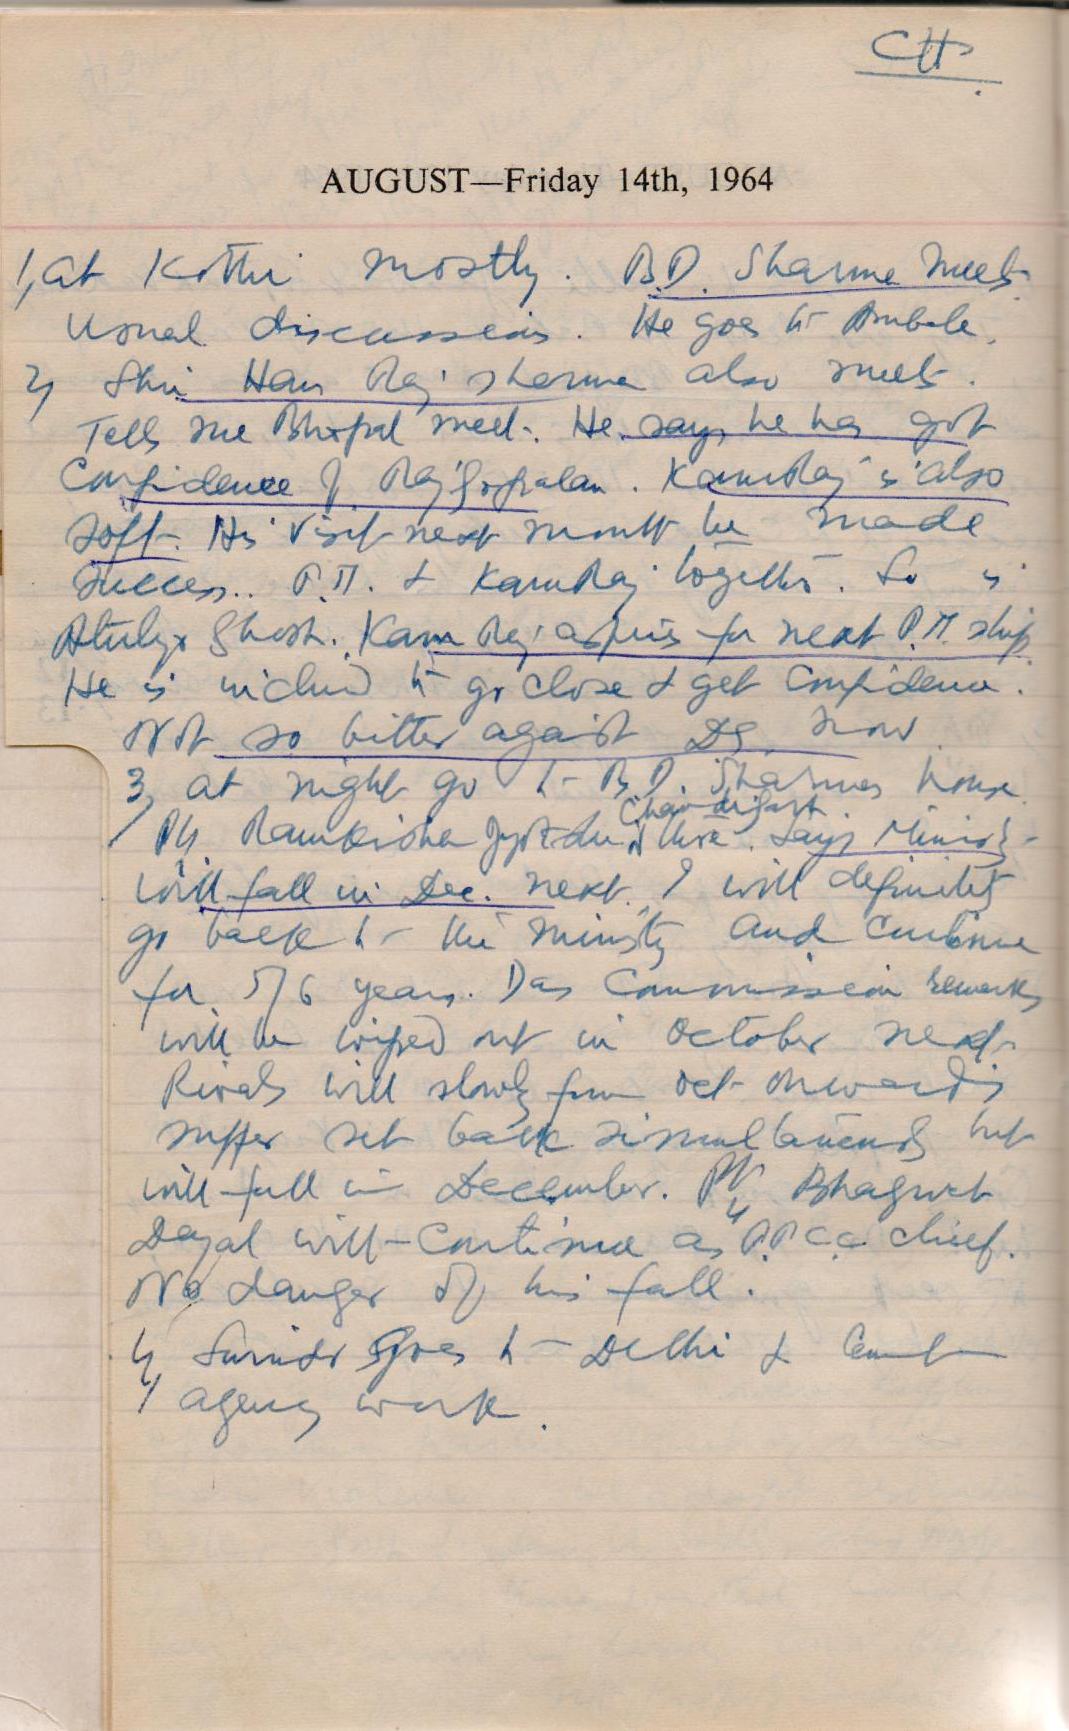 CH
AUGUST—Friday 14th, 1964
1, at Kothi mostly. B.D. Sharma meets
usual discussions. He goes to Ambala.
2, Shri Hans Raj Sharma also meets.
Tells me Bhopal meet. He says he has got
Confidence of Rajgopalan. KamRaj is also
soft. His visit next month be made
success.. P.M. & KamRaj together. So is
Atulya Ghosh. KamRaj aspires for next P.M. ship
He is inclined to go close & get Confidence.
Not so bitter against DS now.
3, at night go to B.D. Sharmas house.
Chandigarh
Pt. Ramkishan there. Says Ministry
will fall in Dec. next. I will definitely
go back to the ministry and continue
for 5/6 years. Das Commission remarks
will be wiped out in October next.
Rivals will slowly from Oct- onwards
suffer set back simultaneously but
will fall in December. Pt. Bhagwat
Dayal will continue as P.P.C.C. chief.
No danger of his fall.
4, Surinder goes to Delhi &
agency work.